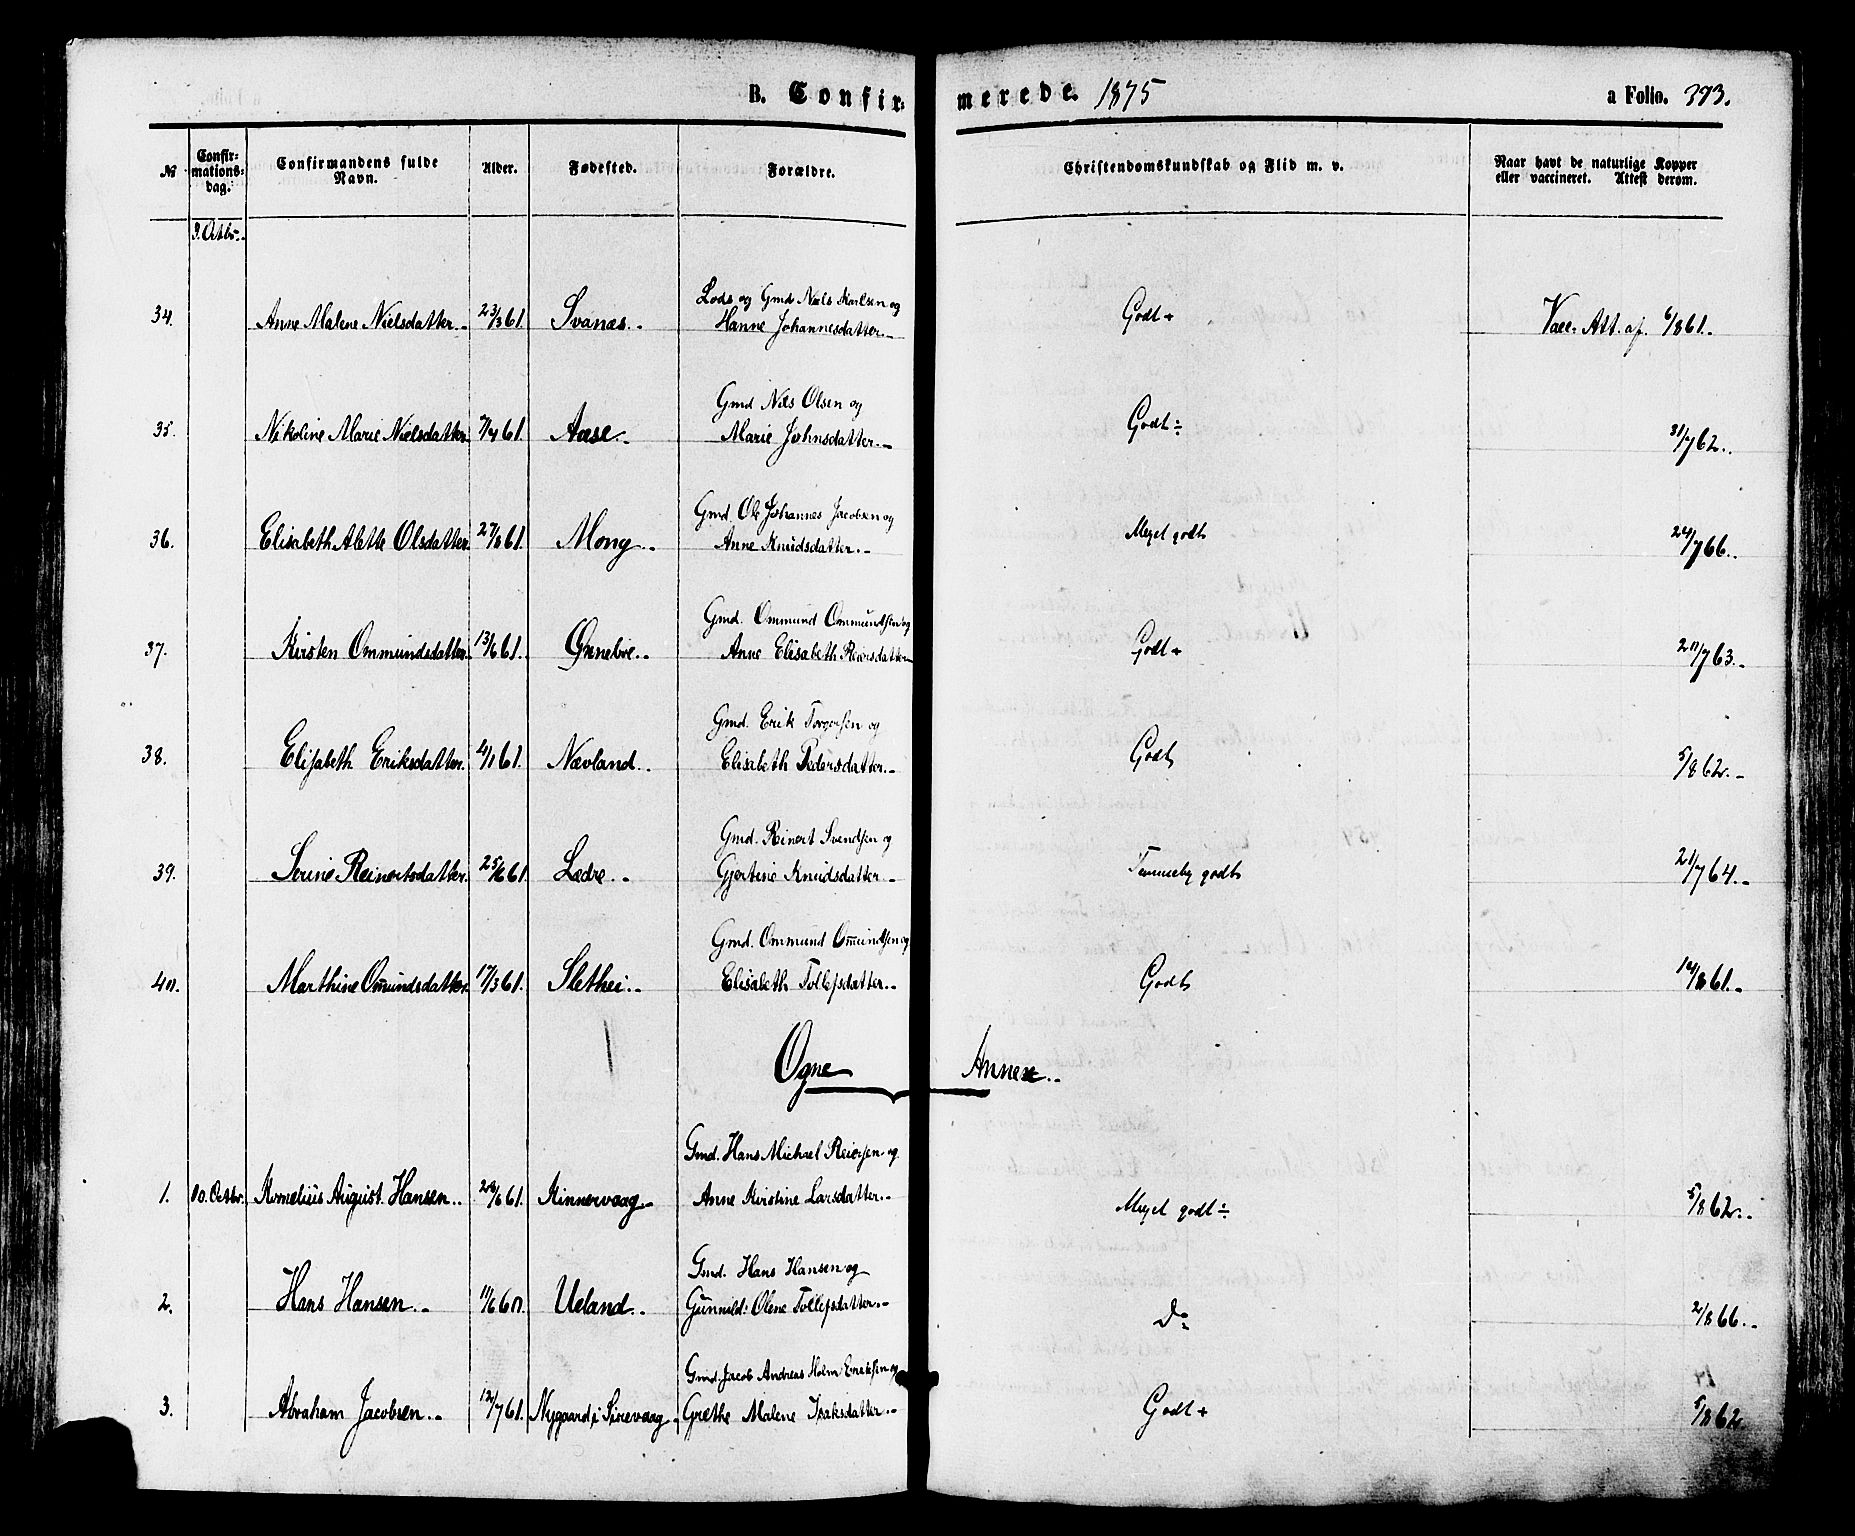 B. Confir- merede. 1875 a Folio. 393.
№ Confirmations-dag. Confirmandens fulde Navn. Alder. Fødested. Forældre. Christendomskundskab og Flid m. v. Naar havt de naturlige Kopper eller vaccineret. Attest derom.
3. Octbr.
Lods og Gmd Niels Karlsen og
34. Anne Malene Nielsdatter 23/3 61. Svanæs. Hanne Johannesdatter. Godt + Vacc. Att. af. 6/8 61.
Gmd Nils Olsen og
35. Nikoline Marie Nielsdatter 7/4 61. Aase. Marie Johnsdatter. Godt ÷ 31/7 62.
Gmd. Ole Johannes Jacobsen og
36. Elisabeth Alette Olsdatter 61. Mong. Anne Knudsdatter. Meget godt 24/7 66.
Gmd. Ommund Ommundsen og
37. Kirsten Ommundsdatter 13/6 61. Grøneboe. Anne Elisabeth Reiersdatter Godt + 20/7 63.
Gmd. Erik Torgersen og
38. Elisabeth Eriksdatter. 4/1 61. Nævland. Elisabeth Pedersdatter. Godt 5/8 62.
Gmd. Reinert Svendsen og
39. Serine Reinertsdatter. 25/6 61. Lædre. Gjertine Knudsdatter Temmelig godt 21/7 64.
Gmd. Ommund Om̅undsen og
40. Marthine Om̅undsdatter 17/3 61. Slethei. Elisabeth Tollefsdatter. Godt 14/8 61.
Ogne Annex.
Gmd. Hans Michael Reiersen og
1. 10. Octbr. Kornelius August Hansen. 61. Kinnervaag. Anne Kirstine Larsdatter. Meget godt ÷ 5/8 62.
Gmd. Hans Hansen og
2. Hans Hansen. 11/6 60. Ueland. Gunnild Olene Tollefsdatter. Do 2/8 66.
Gmd. Jacob Andreas Holm Eriksen og
3. Abraham Jacobsen. 12/7 61. Nygaard i Sirevaag. Grethe Malene Isaksdatter. Godt + 5/8 62